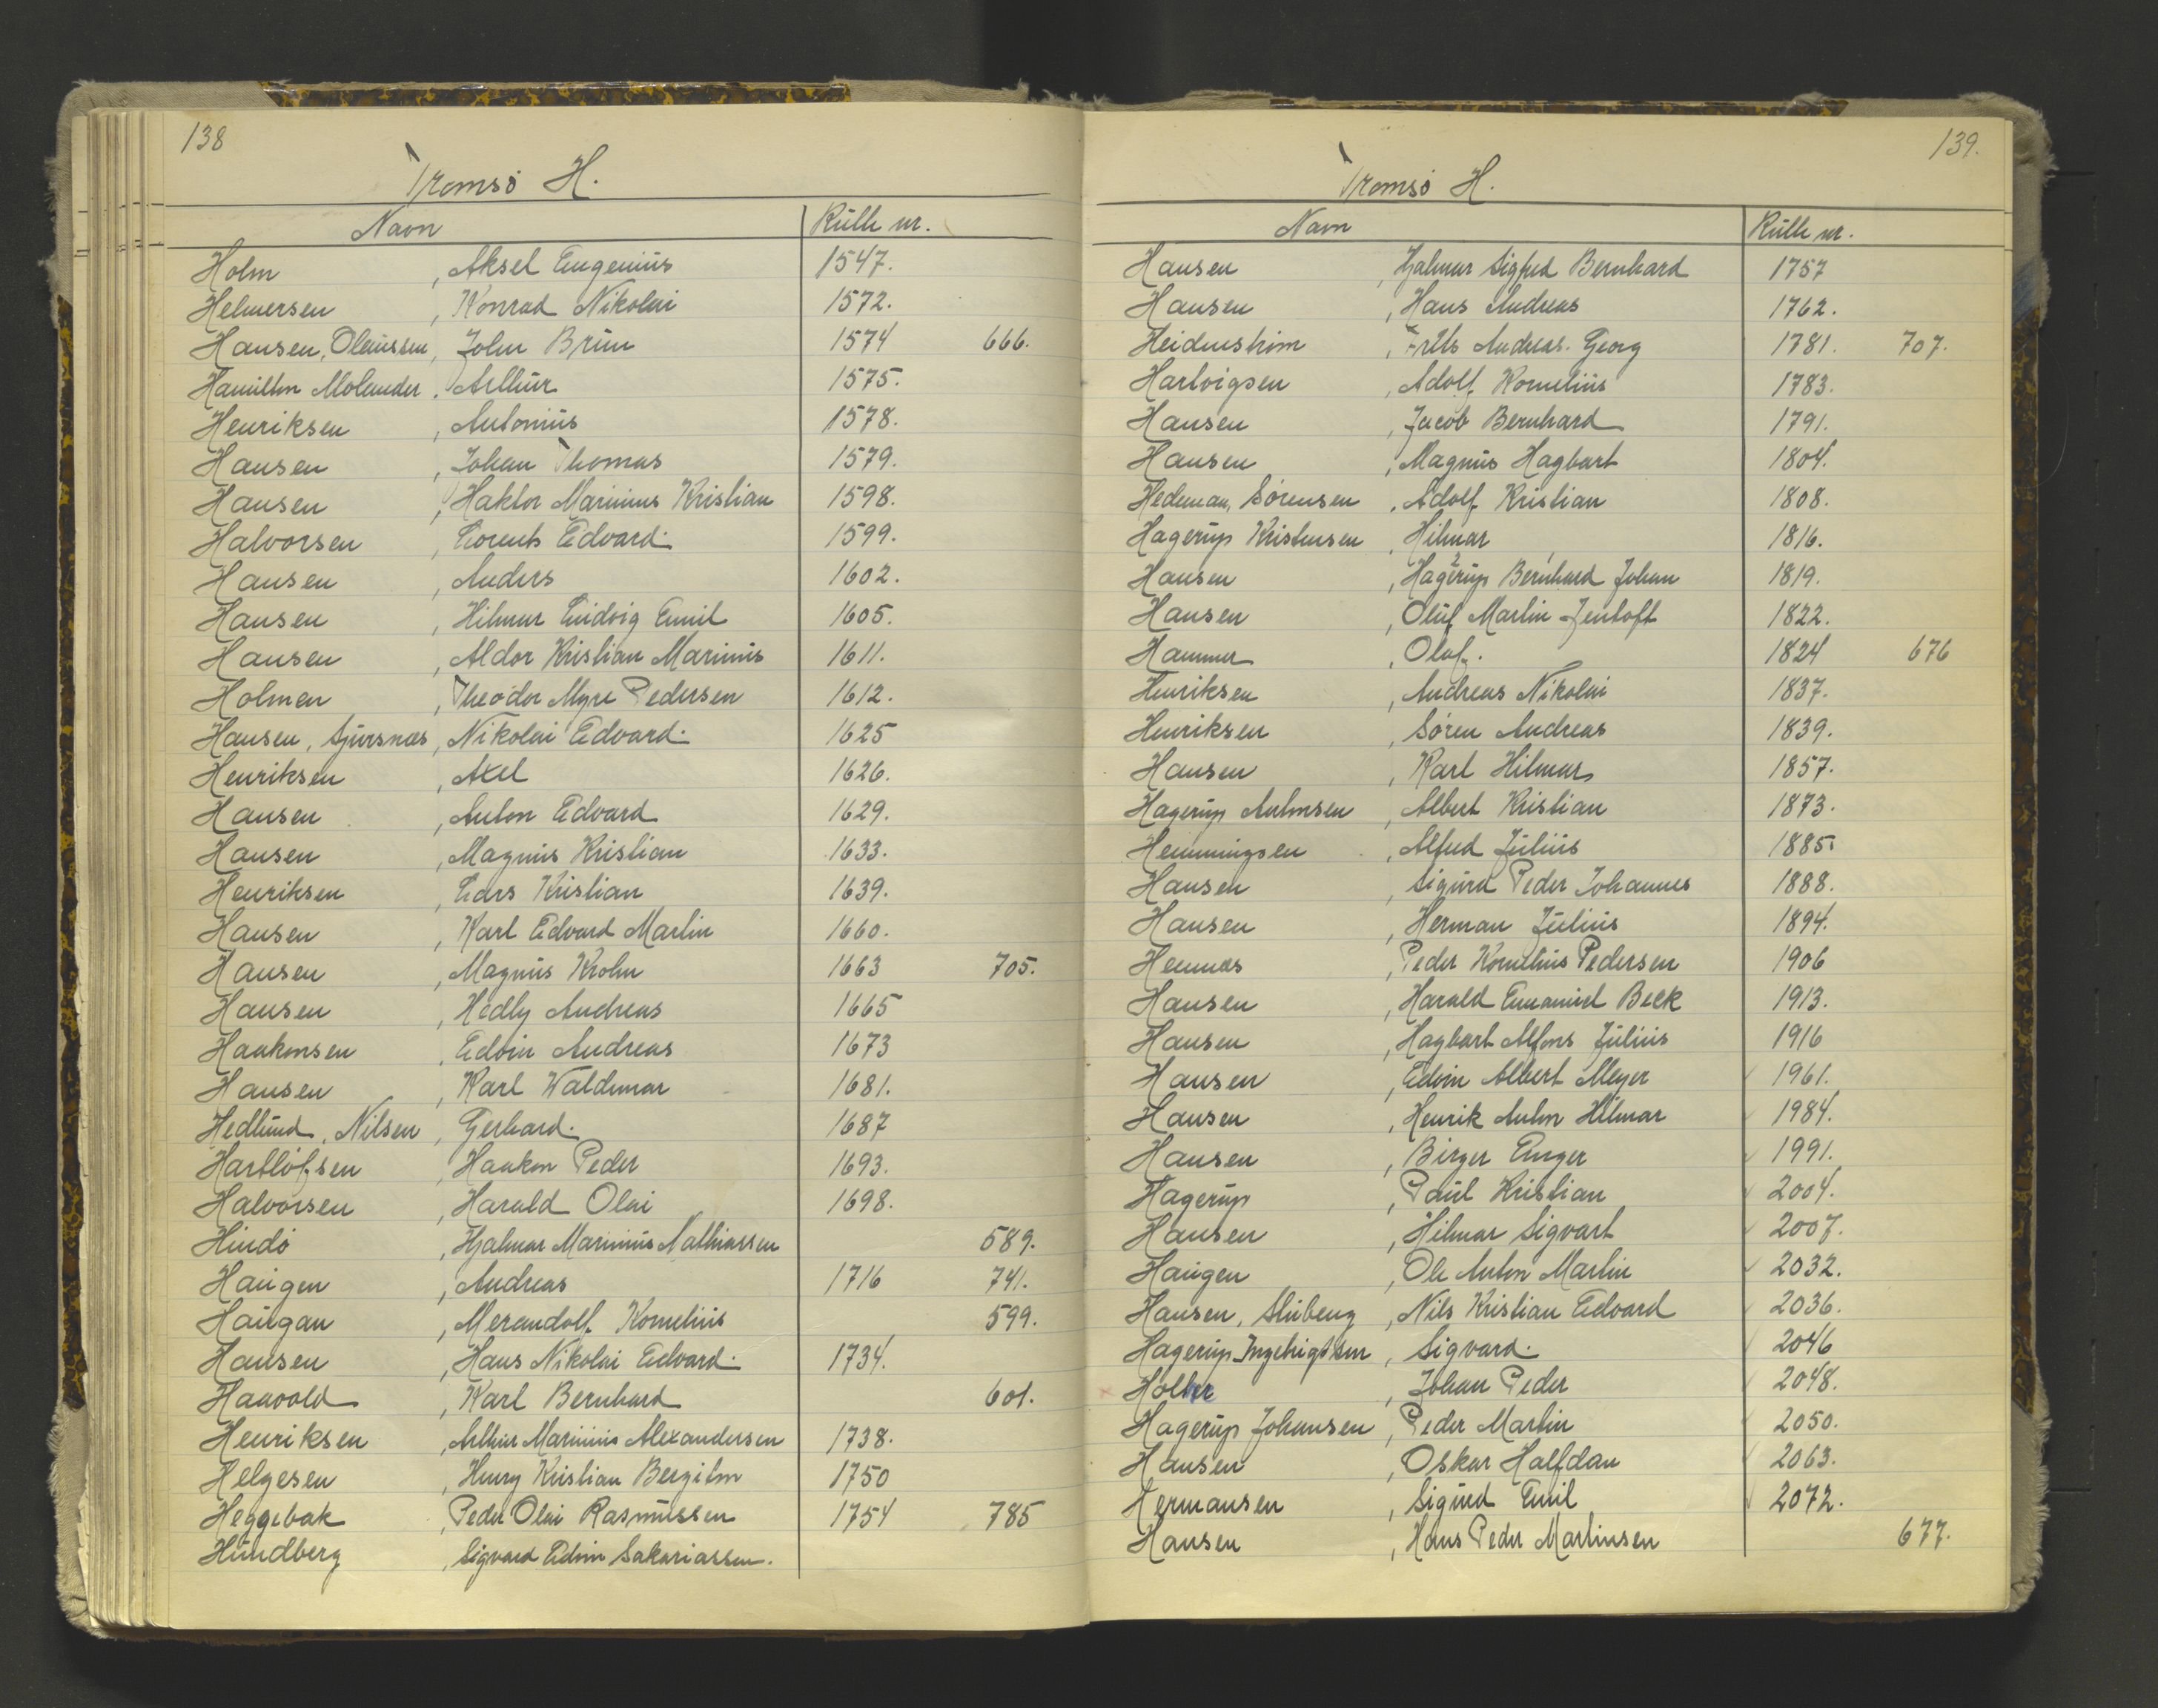 138
Tromsø H.
Navn Rulle nr.
Holm , Aksel Eugenius 1547.
Helmersen , Konrad Nikolai 1572.
Hansen, Olaussen, John Brun 1574 666.
Hamilton Molander . Arthur 1575.
Henriksen , Antonius 1578.
Hansen , Johan Thomas 1579.
Hansen , Haktor Marinius Kristian 1598.
Halvorsen , Lorents Edvard. 1599.
Hansen , Anders 1602.
Hansen , Hilmar Ludvig Emil 1605.
Hansen , Aldor Kristian Marinus 1611.
Holmen , Theodor Myre Pedersen 1612.
Hansen, Sjursnæs, Nikolai Edvard. 1625
Henriksen , Axel 1626.
Hansen , Anton Edvard 1629.
Hansen , Magnus Kristian 1633.
Henriksen , Lars Kristian 1639.
Hansen , Karl Edvard Martin 1660.
Hansen , Magnus Krohn 1663 705.
Hansen , Hedly Andreas 1665
Haakonsen , Edvin Andreas 1673
Hansen , Karl Waldemar 1681.
Hedlund, Nilsen , Gerhard. 1687
Hartlofsen , Haakon Peder 1693.
Halvorsen , Harald Olai 1698.
Hindö , Hjalmar Marinius Mathiassen 589.
Haugen , Andreas 1716 741.
Haugan , Merandolf Kornelius 599.
Hansen , Hans Nikolai Edvard. 1734.
Haavold , Karl Bernhard 601.
Henriksen , Arthur Marinius Alexandersen 1738.
Helgesen , Henry Kristian Bergiton 1750
Heggebak , Peder Olai Rasmussen 1754 785
Hundberg , Sigvard Edvin Sakariassen.
139.
Tromsø H.
Navn Rulle nr.
Hansen , Hjalmar Sigfred Bernhard 1757
Hansen , Hans Andreas 1762.
Heidenstrøm , Frits Andreas. Georg 1781. 707.
Hartvigsen , Adolf Kornelius 1783.
Hansen , Jacob Bernhard 1791.
Hansen , Magnus Hagbart 1804.
Hedeman, Sørensen , Adolf Kristian 1808.
Hagerup Kristensen , Hilmar 1816.
Hansen , Hagerup Bernhard Johan 1819.
Hansen , Oluf Martin Jentoft 1822.
Hammer , Olaf. 1824 676
Henriksen , Andreas Nikolai 1837.
Henriksen , Søren Andreas 1839.
Hansen , Karl Hilmar 1857.
Hagerup Antonsen , Albert Kristian 1873.
Hemmingsen , Alfred Julius 1885
Hansen , Sigurd Peder Johannes 1888.
Hansen , Herman Julius 1894.
Hennæs , Peder Kornelius Pedersen 1906
Hansen , Harald Emanuel Beck 1913.
Hansen , Hagbart Alfons Julius 1916
Hansen , Edvin Albert Meyer 1961.
Hansen , Henrik Anton Hilmar 1984.
Hansen , Birger Unger 1991.
Hagerup , Paul Kristian 2004.
Hansen , Hilmar Sigvart 2007.
Haugen , Ole Anton Martin 2032.
Hansen, , Nils Kristian Edvard 2036.
Hagerup Ingebrigtsen , Sigvard. 2046
Holter , Johan Peder 2048.
Hagerup Johansen , Peder Martin 2050.
Hansen , Oskar Halfdan 2063.
Hermansen , Sigurd Emil 2072.
Hansen , Hans Peder Martinsen 677.